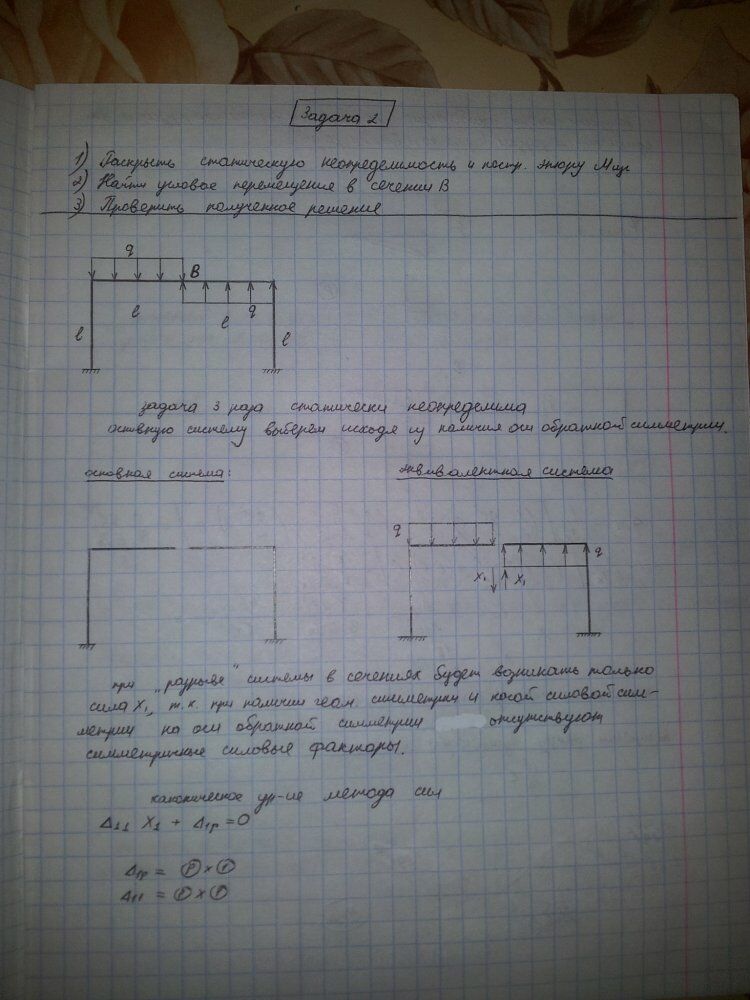 Задача 2
1) Раскрыть статическую неопределимость и постр. эпюру Mизг
2) Найти угловое перемещение в сечении B
3) Проверить полученное решение
q
B
l
l
l
q
l
задача 3 раза статически неопределима
основную систему выберем исходя из наличия оси обратной симметрии.
основная система:
эквивалентная система
q
q
X₁
X₁
при "разрыве" системы в сечениях будет возникать только
сила X₁, т.к. при наличии геом. симметрии и косой силовой сим-
метрии на оси обратной симметрии отсутствуют
симметричные силовые факторы.
каноническое ур-ие метода сил
Δ₁₁ X₁ + Δ₁p = 0
Δ₁p = (p) × (1)
Δ₁₁ = (1) × (1)